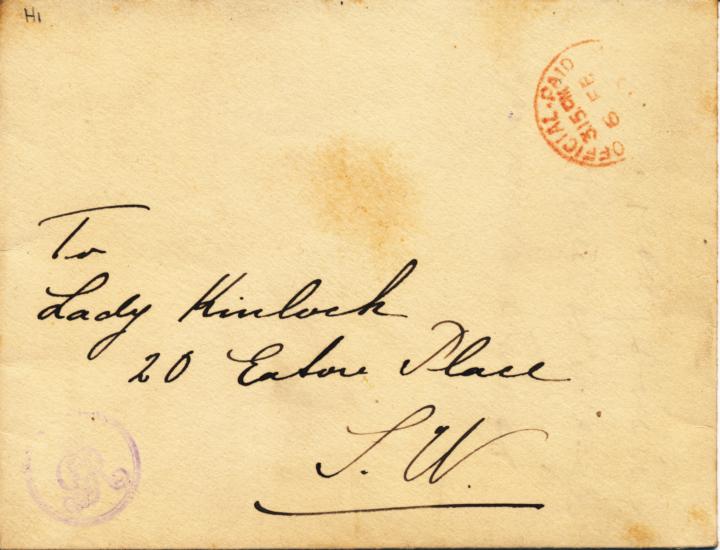 HI
OFFICIAL PAID
3.15 PM
6 FE
To
Lady Kinloch
20 Eaton Place
S. W.